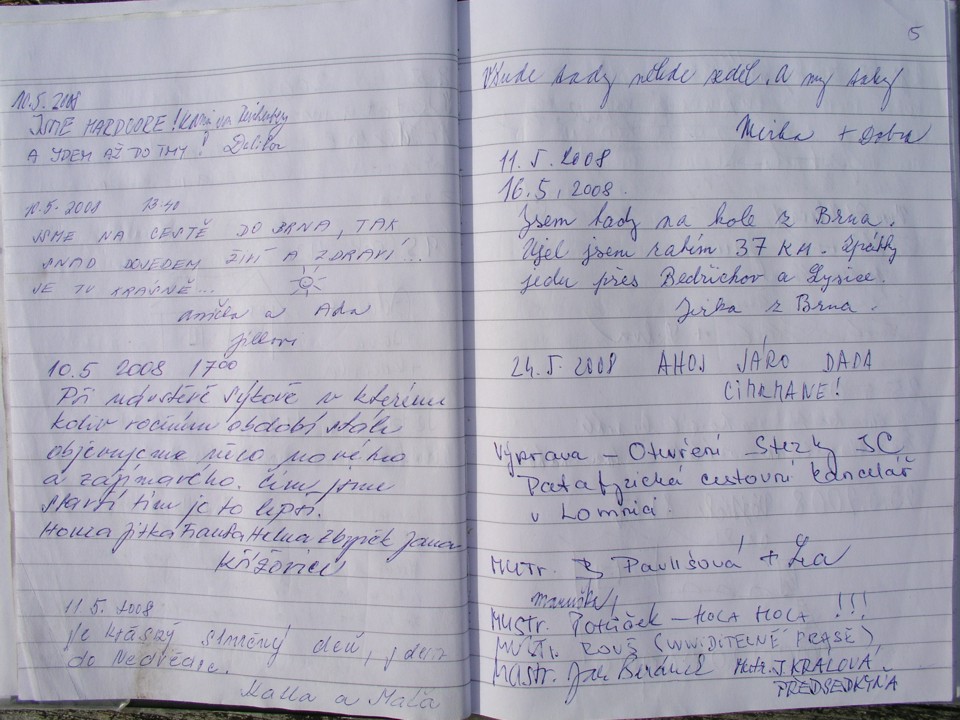 10.5.2008
JSME HARDCORE!
A JDEM AŽ DO TMY! Dalibor
10.5.2008 13:40
JSME NA CESTĚ DO BRNA, TAK
SNAD DOJEDEM ŽIVÍ A ZDRAVÍ!
JE TU KRÁSNĚ...
a Ada
10.5 2008 17⁰⁰
Při návštěvě Sýkoře v kterému
koliv ročnímu období stále
objevujeme něco nového
a zajímavého. Čím jsme
starší tím je to lepší.
Honza Jitka Franta Helena Zbyněk Jana
Křížovici
11.5. 2008
Je krásný slunečný deň, jdem
do Nedvědice.
Kalla a Maťa
5
Všude tady někde seděl. A my taky
Mirka + Dobra
11.5.2008
16.5.2008.
Jsem tady na kole z Brna.
Ujel jsem zatím 37 KM. Zpátky
jedu přes Bedřichov a Lysice.
Jirka z Brna.
24.5.2008 AHOJ JÁRO DADA
CIMRMANE!
Výprava – Otevření Stezky JC
Patafyzická cestovní kancelář
v Lomnici.
MUTR. Pavlišová + Lea
Maruška
MUSTR. – HOLA HOLA !!!
MUTR. ROUŠ (VIDITELNÉ PRASE)
MASTR. Jan Beránek MUTR. J KRÁLOVÁ
PŘEDSEDKYNĚ